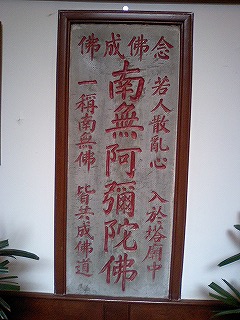 念佛成佛
若人散亂心 入於塔廟中
南無阿彌陀佛
一稱南無佛 皆共成佛道